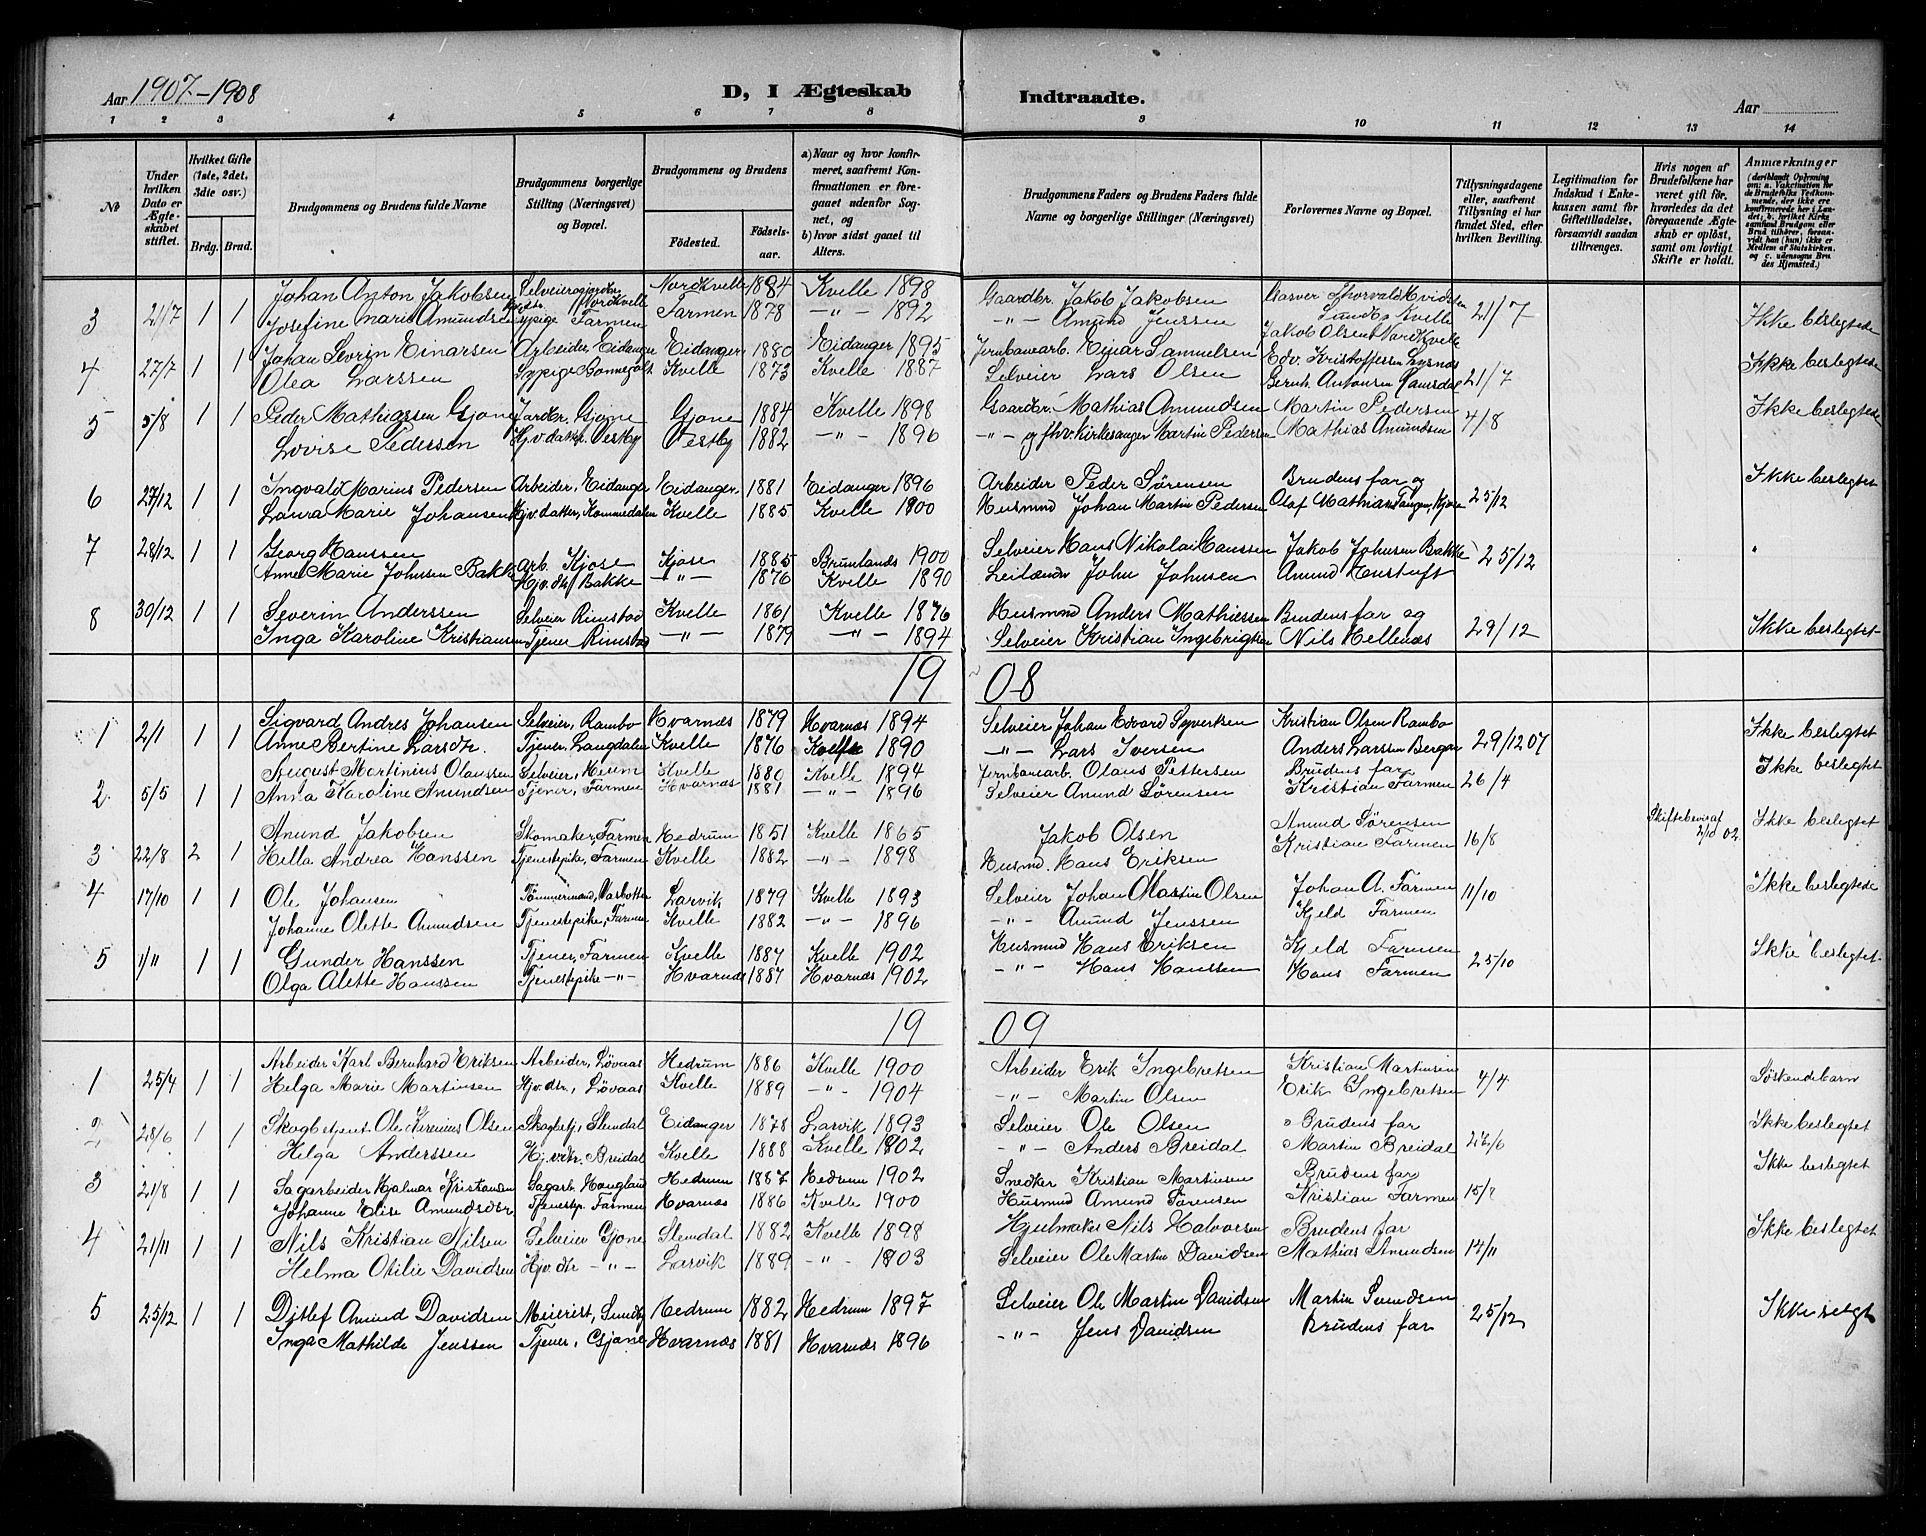 Aar 1907-1908 D, I Ægteskab Indtraadte. Aar
1 2 3 4 5 6 7 8 9 10 11 12 13 14
No
Under hvilken Dato er Ægteskabet stiftet.
Hvilket Gifte (1ste, 2det, 3die osv.).
Brdg. Brud.
Brudgommens og Brudens fulde Navne
Brudgommens borgerlige Stilling (Næringsvei) og Bopæl.
Brudgommens og Brudens
Födested. Födsels-aar.
a) Naar og hvor konfirmeret, saafremt Konfirmationen er foregaaet udenfor Sognet, og
b) hvor sidst gaaet til Alters.
Brudgommens Faders og Brudens Faders fulde Navne og borgerlige Stillinger (Næringsvei)
Forlovernes Navne og Bopæl.
Tillysningsdagene eller, saafremt Tillysning ei har fundet Sted, efter hvilken Bevilling.
Legitimation for Indskud i Enkekassen samt for Giftetilladelse, forsaavidt saadan tiltrænges.
Hvis nogen af Brudefolkene har været gift för, hvorledes da det foregaaende Ægteskab er oplöst, samt om lovligt Skifte er holdt.
Anmærkninger
3 21/7 1 1 Johan Anton Jakobsen Selveier Nordkvelle 1884 Kvelle 1898 Gaardbr. Jakob Jakobsen Garver Thorvald Kvelle 21/7 Ikke beslegtede
Josefine Marie Amundsen Farmen Farmen 1878 -"- 1892 -"- Amund Jenssen Jakob Olsen Nordkvelle
4 27/7 1 1 Johan Sevrin Einarsen Arbeider, Eidanger Eidanger 1880 Eidanger 1895 Jernbanearb. Einar Samuelsen Edv. Kristoffersen 21/7 Ikke beslegtede
Olea Larssen Kvelle 1873 Kvelle 1887 Selveier Lars Olsen Bernh. Antonsen
5 5/8 1 1 Peder Mathiassen Gjone Gjone Gjone 1884 Kvelle 1898 Gaardbr. Mathias Amundsen Martin Pedersen 4/8 Ikke beslegtede
Lovise Pedersen Hjv. datter Vestby Vestby 1882 -"- 1896 -"- og fhv. Kirkesanger Martin Pedersen Mathias Amundsen
6 27/12 1 1 Ingvald Marius Pedersen Arbeider, Eidanger Eidanger. 1881 Eidanger 1896 Arbeider Peder Sørensen Brudens far og 25/12 Ikke beslegtet
Laura Marie Johansen Hjv. datter, Kommedalen Kvelle 1885 Kvelle 1900 Husmnd Johan Martin Pedersen Olaf Mathias Tangen, Kjose
7 28/12 1 1 Georg Hanssen Arb. Kjose Kjose 1885 Brunlands 1900 Selveier Hans Nikolai Hanssen Jakob Johnsen Bakke 25/12 "
Anne Marie Johnsen Bakke Hjv. dtr Bakke -"- 1876 Kvelle 1890 Leilænder John Johnsen Amund
8 30/12 1 1 Severin Anderssen Selveier Rimstad Kvelle 1861 Kvelle 1876 Husmnd Anders Mathiessen Brudens far og 29/12 Ikke beslegtet
Inga Karoline Kristiansen Tjener Rimstad -"- 1879 -"- 1894 Selveier Kristian Ingebrigtsen Nils Hellenes
1908
1 2/1 1 1 Sigvard Andres Johansen Selveier, Rambo Hvarnæs 1879 Hvarnæs 1894 Selveier Johan Edvard Syvertsen Kristian Olsen Rambo 29/12 07 Ikke beslegtet
Anne Bertine Larsdtr. Tjener Langdalen Kvelle 1876 Kvelle 1890 -"- Lars Iversen Anders Larssen Bergan
2 5/5 1 1 August Martinius Olaussen Selveier, Heum Kvelle 1880 Kvelle 1894 Jernbanearb. Olaus Pettersen Brudens far 26/4 Ikke beslegtet
Anna Karoline Amundsen Tjener, Farmen Hvarnæs 1881 -"- 1896 Selveier Amund Sørensen Kristian Farmen
3 22/8 2 1 Anund Jakobsen Skomaker, Farmen Hedrum 1851 Kvelle 1865 Jakob Olsen Amund Sørensen 16/8 Skiftebevis af 2/10 02 Ikke beslegtet
Hella Andrea Hanssen Tjenestepike, Farmen Kvelle 1882 -"- 1898 Husmd. Hans Eriksen Kristian Farmen
4 17/10 1 1 Ole Johansen Tømmermand, Vasbotten Larvik 1879 Kvelle 1893 Selveier Johan Martin Olsen Johan A. Farmen 11/10 Ikke beslegtede
Johanne Olette Amundsen Tjenestepike, Farmen Kvelle 1882 -"- 1896 -"- Amund Jenssen Kjeld Farmen
5 1/11 1 1 Gunder Hanssen Tjener, Farmen Kvelle 1887 Kvelle 1902 Husmnd Hans Eriksen Kjeld Farmen 25/10 Ikke beslegtet
Olga Alette Hanssen Tjenestepike -"- Hvarnæs 1887 Hvarnæs 1902 -"- Hans Hanssen Hans Farmen
1909
1 25/4 1 1 Arbeider Karl Bernhard Eriksen Arbeider, Løvaas Hedrum 1886 Kvelle 1900 Arbeider Erik Ingebretsen Kristian Martinsen 4/4 Søskendebarn
Helga Marie Martinsen Hjv. dtr., Løvaas Kvelle 1889 -"- 1904 -"- Martin Olsen Erik Ingebretsen
2 28/6 1 1 Skogbetjent Ole Severinius Olsen Skogbetj., Slemdal Eidanger 1878 Larvik 1893 Selveier Ole Olsen Brudens far Ikke beslegtet
Helga Anderssen Hjv. dtr. Breidal Kvelle 1888 Kvelle 1902 -"- Anders Breidal Martin Breidal
3 21/8 1 1 Sagarbeider Hjalmar Kristiansen Sagarb. Haugland Hedrum 1887 Hedrum 1902 Snedker Kristian Martinsen Brudens far 15/8 Ikke beslegtet
Johanne Elise Amundsdtr. Tjenestep. Farmen Hvarnæs 1886 Kvelle 1900 Husmnd Amund Sørensen Kristian Farmen
4 21/11 1 1 Nils Kristian Nilsen Selveier Gjone Slemdal 1882 Kvelle 1898 Hjulmaker Nils Halvorsen Brudens far 14/11 Ikke beslegtet
Helma Otilie Davidsen Hjv. dtr -"- Larvik 1889 -"- 1903 Selveier Ole Martin Davidsen Mathias Amundsen
5 25/12 1 1 Ditlef Amund Davidsen Meierist, Sundby Hedrum 1882 Hedrum 1897 Selveier Ole Martin Davidsen Martin 25/12 Ikke
Inga Mathilde Jenssen Tjener, Gjone Hvarnæs 1881 Hvarnæs 1896 -"- Jens Davidsen Brudens far